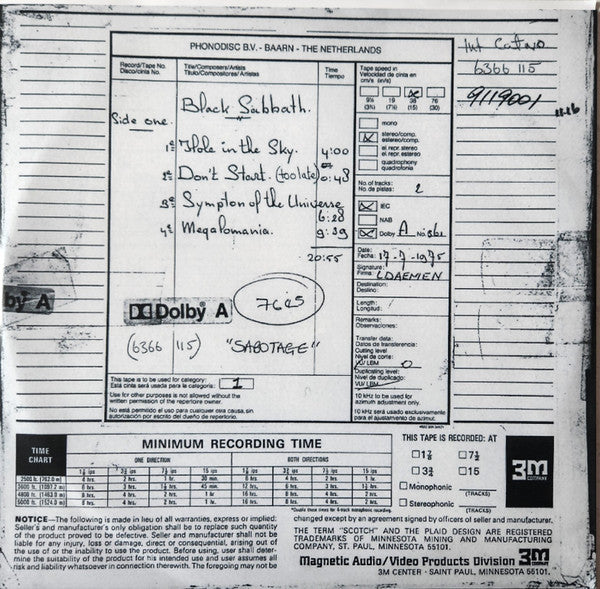 Int Cat no
6366 115
9119001
11.16
PHONODISC B.V. - BAARN - THE NETHERLANDS
Record/Tape No.
Disco/cinta No.
Title/Composers/Artists
Titulo/Compositores/Artistas
Time
Tiempo
Black Sabbath.
Side one.
1e Hole in the Sky. 4:00
2e Don't Start. (too late) 0:48
3e Sympton of the Universe
6:28
4e Megalomania. 9:39
20:55
DOLBY A
7615
(6366 115) "SABOTAGE"
by A
This tape is to be used for category: 1
Está cinta será usada para la categoría:
Use for other purposes is not allowed without the
written permission of the repertoire owner.
No está permitido el uso para cualquier otra causa, sin
autorización por escrito del dueño de repertorio.
Tape speed in
Velocidad de cinta en
cm/s (in/s)
9½ 19 38 76
(3¾) (7½) (15) (30)
mono
stereo/comp.
estereo/comp.
el. repr. stereo
el. rep. estereo
quadrophony
quadrofonia
No. of tracks: 2
No. de pistas:
IEC
NAB
Dolby A No.
Date:
Fecha: 17-7-1975
Signature:
Firma: LDAEMEN
Destination:
Destino:
Length:
Longitud:
Remarks:
Observaciones:
Transfer data:
Datos de transferencia:
Cutting level
Nivel de corte:
VU/LBM 0
Duplicating level:
Nivel de duplicado:
VU/LBM
10 kHz to be used for
azimuth adjustment only.
10 kHz será usado exclusivamente
para el ajustamiento de azimut.
TIME
CHART
MINIMUM RECORDING TIME
ONE DIRECTION BOTH DIRECTIONS
1⅞ ips 3¾ ips 7½ ips 15 ips 1⅞ ips 3¾ ips 7½ ips 15 ips
2500 ft. (762.0 m) 4 hrs. 2 hrs. 1 hr. 30 min. 8 hrs. 4 hrs. 2 hrs. 1 hr.
3600 ft. (1097.2 m) 6 hrs. 3 hrs. 1½ hrs. 45 min. 12 hrs. 6 hrs. 3 hrs. 1½ hrs.
4800 ft. (1463.0 m) 8 hrs. 4 hrs. 2 hrs. 1 hr. 16 hrs. 8 hrs. 4 hrs. 2 hrs.
5000 ft. (1524.0 m) 8 hrs. 4 hrs. 2 hrs. 1 hr. 16 hrs. 8 hrs. 4 hrs. 2 hrs.
*Double these times for 4-track monophonic recording.
THIS TAPE IS RECORDED: AT
1⅞ 7½
3¾ 15
Monophonic
(TRACKS)
Stereophonic
(TRACKS)
3M
COMPANY
NOTICE—The following is made in lieu of all warranties, express or implied:
Seller's and manufacturer's only obligation shall be to replace such quantity
of the product proved to be defective. Neither seller nor manufacturer shall not be
liable for any injury, loss or damage, direct or consequential, arising out of
the use of or the inability to use the product. Before using, user shall deter-
mine the suitability of the product for his intended use and user assumes all
risk and liability whatsoever in connection therewith. The foregoing may not be
changed except by an agreement signed by officers of seller and manufacturer.
THE TERM "SCOTCH" AND THE PLAID DESIGN ARE REGISTERED
TRADEMARKS OF MINNESOTA MINING AND MANUFACTURING
COMPANY, ST. PAUL, MINNESOTA 55101.
Magnetic Audio/Video Products Division 3M COMPANY
3M CENTER · SAINT PAUL, MINNESOTA 55101.